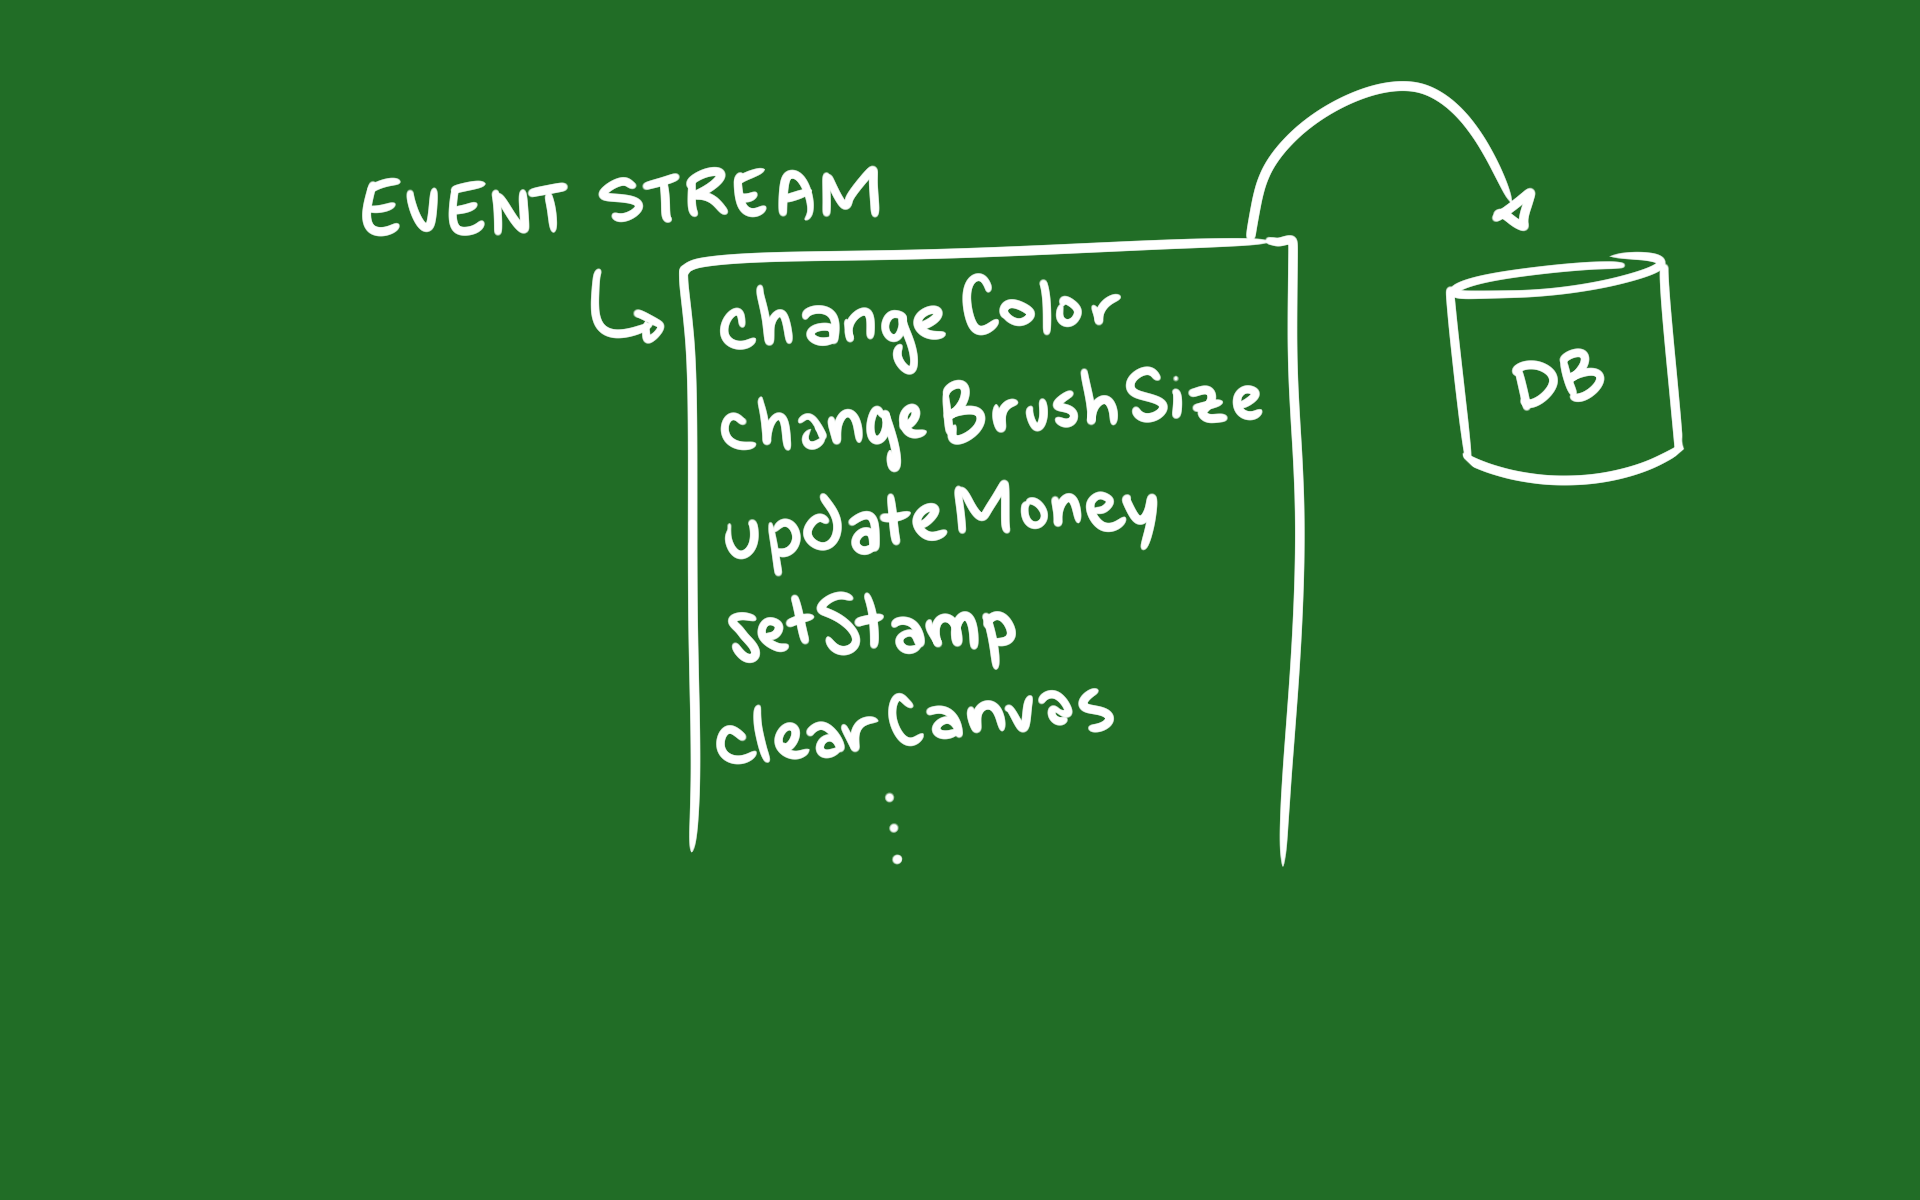 EVENT STREAM
changeColor
changeBrushSize
updateMoney
setStamp
clearCanvas
DB